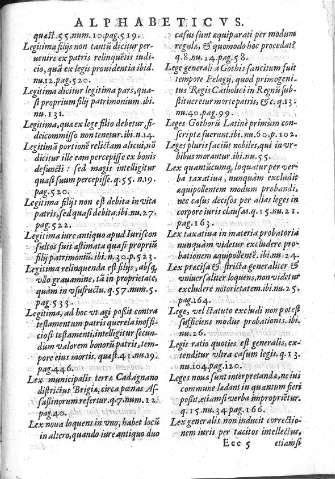 ALPHABETICVS.
quæst.55.num.10.pag.519.
Legitima filijs non tantũ dicitur per-
uenire ex patris relinquẽtis iudi-
cio, quã ex legis prouidentia ibid.
nu.12.pag.520.
Legitima dicitur legitima pars, qua-
si proprium filij patrimonium. ibi.
nu.131.
Legitima, quæ ex lege filio debetur, fi-
deicommisso non tenetur. ibi.n.14.
Legitimã portionẽ relictam alicui, nõ
dicitur ille eam percepisse ex bonis
defuncti: sed magis intelligitur
quasi suum percepisse. q.55.n.19.
pag.520.
Legitima filijs non est debita in vita
patris, sed quasi debita. ibi.nu.27.
pag.522.
Legitima iure antiquo apud Iuriscon
sultos fuit æstimata quasi propriũ
filij patrimoniũ. ibi.n.30.p.523.
Legitima relinquenda est filijs, absq̃
vllo grauamine, tã in proprietate,
quàm in vsufructu. q.57.num.5.
pag.533.
Legitima, ad hoc vt agi possit contra
testamentum patris querela inoffi-
ciosi testamenti, intelligitur secun-
dum valorem bonorũ patris, tem-
pore eius mortis. quæst.41.nu.19.
pag.446.
Lex municipalis terræ Cadagnano
districtus Brigiæ, circa pœnas As-
sassinorum refertur. q.7.num.12.
pag.40.
Lex noua loquens in vno, habet locũ
in altero, quando iure antiquo duo
casus sunt æquiparati per modum
regulæ, & quomodo hoc procedat?
q.8.nu.14.pag.58.
Lege generali à Gothis sancitum fuit
tempore Pelagij, quod primogeni-
tus Regis Catholici in Regnũ sub-
stitueretur morte patris, &c.q.13.
nu.40.pag.99.
Leges Gothorũ Latinè primum con-
scriptæ fuerunt.ibi.nu.60.p.102.
Leges pluris faciũt nobiles, qui in vr-
bibus morantur. ibi.nu.55.
Lex quantũcunq̃, loquatur per ver-
ba taxatiua, nunquàm excludit
æquipollentem modum probandi,
nec casus decisos per alias leges in
corpore iuris clausas. q.15.nu.21.
pag.163.
Lex taxatiua in materia probatoria
nunquàm videtur excludere pro-
bationem æquipollentem. ibi.n.24.
Lex præcisè & strictè generaliter &
vniuersaliter loquens, non videtur
excludere notorietatem. ibi.nu.25.
pag.164.
Lege, vel statuto excludi non potest
sufficiens modus probationis. ibi.
nu.26.
Legis ratio quoties est generalis, ex-
tenditur vltra casum legis. q.13.
nu.104.pag.120.
Leges noua sunt interpretanda, ne ius
commune lædent in quantum fieri
possit, etiamsi verba improprientur.
q.15.nu.34.pag.166.
Lex generalis non inducit correctio-
nem iuris per tacitos intellectus,
Ecc 5 etiamsi